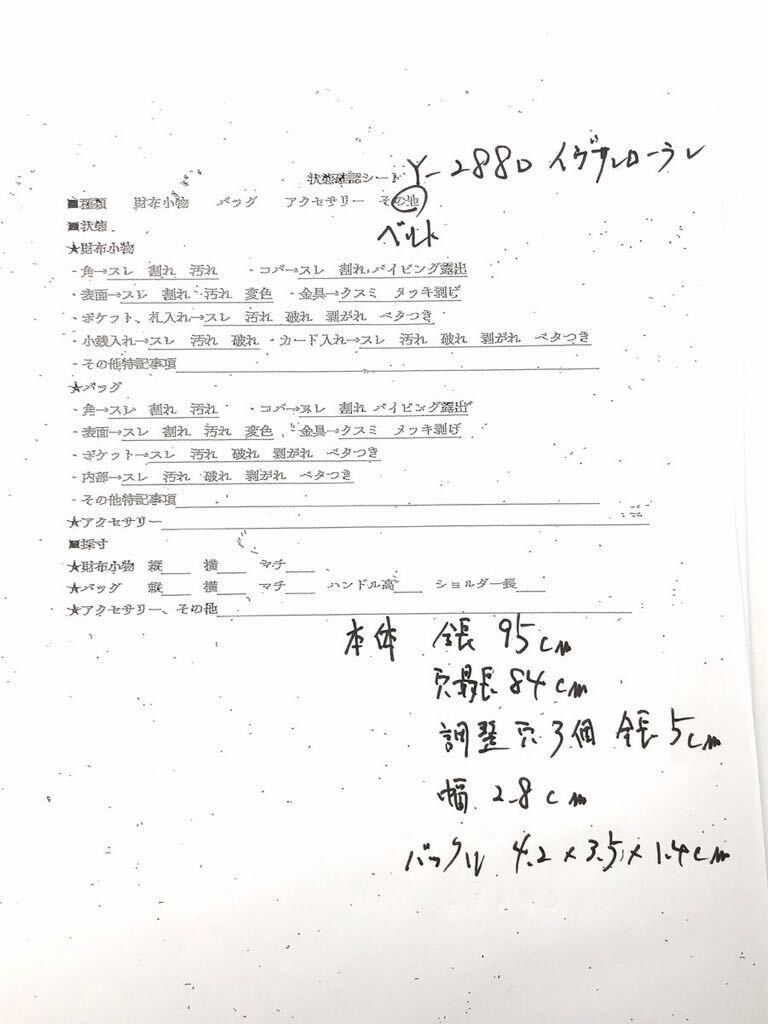 Y-2880 イヴサンローラン
状態確認シート
■種類 財布小物 バッグ アクセサリー その他
ベルト
■状態
★財布小物
・角→スレ 割れ 汚れ ・コバ→スレ 割れ パイピング露出
・表面→スレ 割れ 汚れ 変色 ・金具→クスミ メッキ剥げ
・ポケット、札入れ→スレ 汚れ 破れ 剥がれ ベタつき
・小銭入れ→スレ 汚れ 破れ ・カード入れ→スレ 汚れ 破れ 剥がれ ベタつき
・その他特記事項
★バッグ
・角→スレ 割れ 汚れ ・コバ→スレ 割れ パイピング露出
・表面→スレ 割れ 汚れ 変色 ・金具→クスミ メッキ剥げ
・ポケット→スレ 汚れ 破れ 剥がれ ベタつき
・内部→スレ 汚れ 破れ 剥がれ ベタつき
・その他特記事項
★アクセサリー
■採寸
★財布小物 縦 横 マチ
★バッグ 縦 横 マチ ハンドル高 ショルダー長
★アクセサリー、その他
本体 全長 95cm
穴最長 84cm
調整穴3個 全長5cm
幅 2.8cm
バックル 4.2×3.5×1.4cm